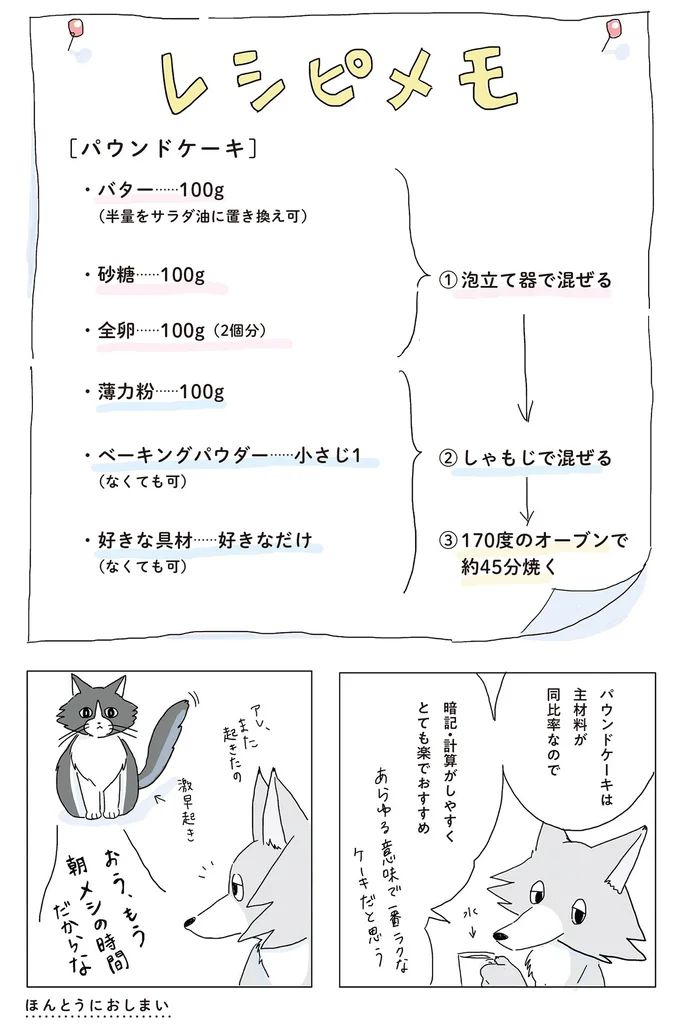 レシピメモ
［パウンドケーキ］
・バター……100g
（半量をサラダ油に置き換え可）
・砂糖……100g
・全卵……100g（2個分）
・薄力粉……100g
・ベーキングパウダー……小さじ1
（なくても可）
・好きな具材……好きなだけ
（なくても可）
①泡立て器で混ぜる
②しゃもじで混ぜる
③170度のオーブンで
約45分焼く
パウンドケーキは
主材料が
同比率なので
暗記・計算がしやすく
とても楽でおすすめ
あらゆる意味で一番ラクな
ケーキだと思う
水
アレ、
また
起きたの
激早起き
おう、もう
朝メシの時間
だからな
ほんとうにおしまい